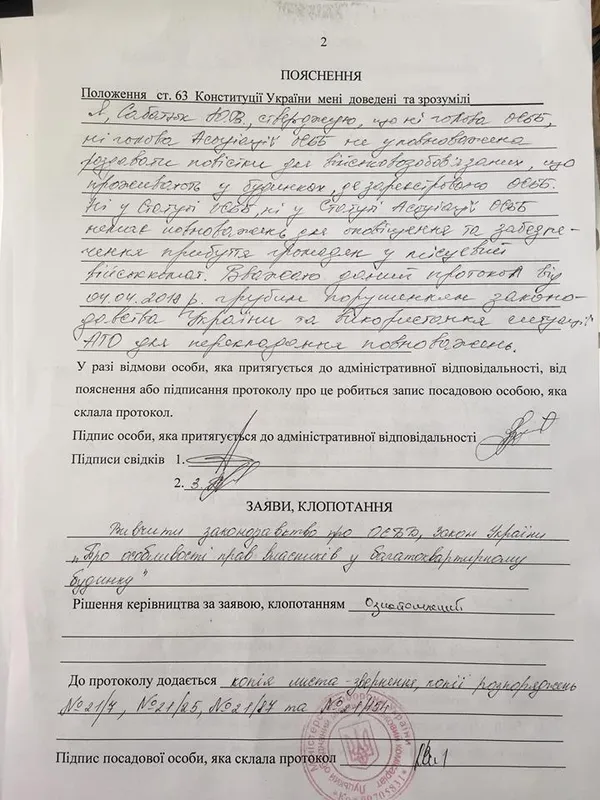 2
ПОЯСНЕННЯ
Положення ст. 63 Конституції України мені доведені та зрозумілі
Я, Сабатюк Ю.В, стверджую, що ні голова ОСББ,
ні голова Асоціації ОСББ не уповноважена
роздавати повістки для військовозобов'язаних, що
проживають у будинках, де зареєстровано ОСББ.
Ні у Статуті ОСББ, ні у Статуті Асоціації ОСББ
немає повноважень для оповіщення та забезпе-
чення прибуття громадян у місцевий
військкомат. Вважаю даний протокол від
04.04.2019 р. грубим порушенням законо-
давства України та використання ситуації
АТО для перекладання повноважень.
У разі відмови особи, яка притягується до адміністративної відповідальності, від
пояснення або підписання протоколу про це робиться запис посадовою особою, яка
склала протокол.
Підпис особи, яка притягується до адміністративної відповідальності
Підписи свідків 1.
2.
ЗАЯВИ, КЛОПОТАННЯ
Вивчити законодавство про ОСББ, Закон України
„Про особливості прав власників у багатоквартирному
будинку"
Рішення керівництва за заявою, клопотанням Ознайомлений
До протоколу додається копія листа-звернення, копії розпоряджень
№21/7, №21/25, №21/27 та
Підпис посадової особи, яка склала протокол